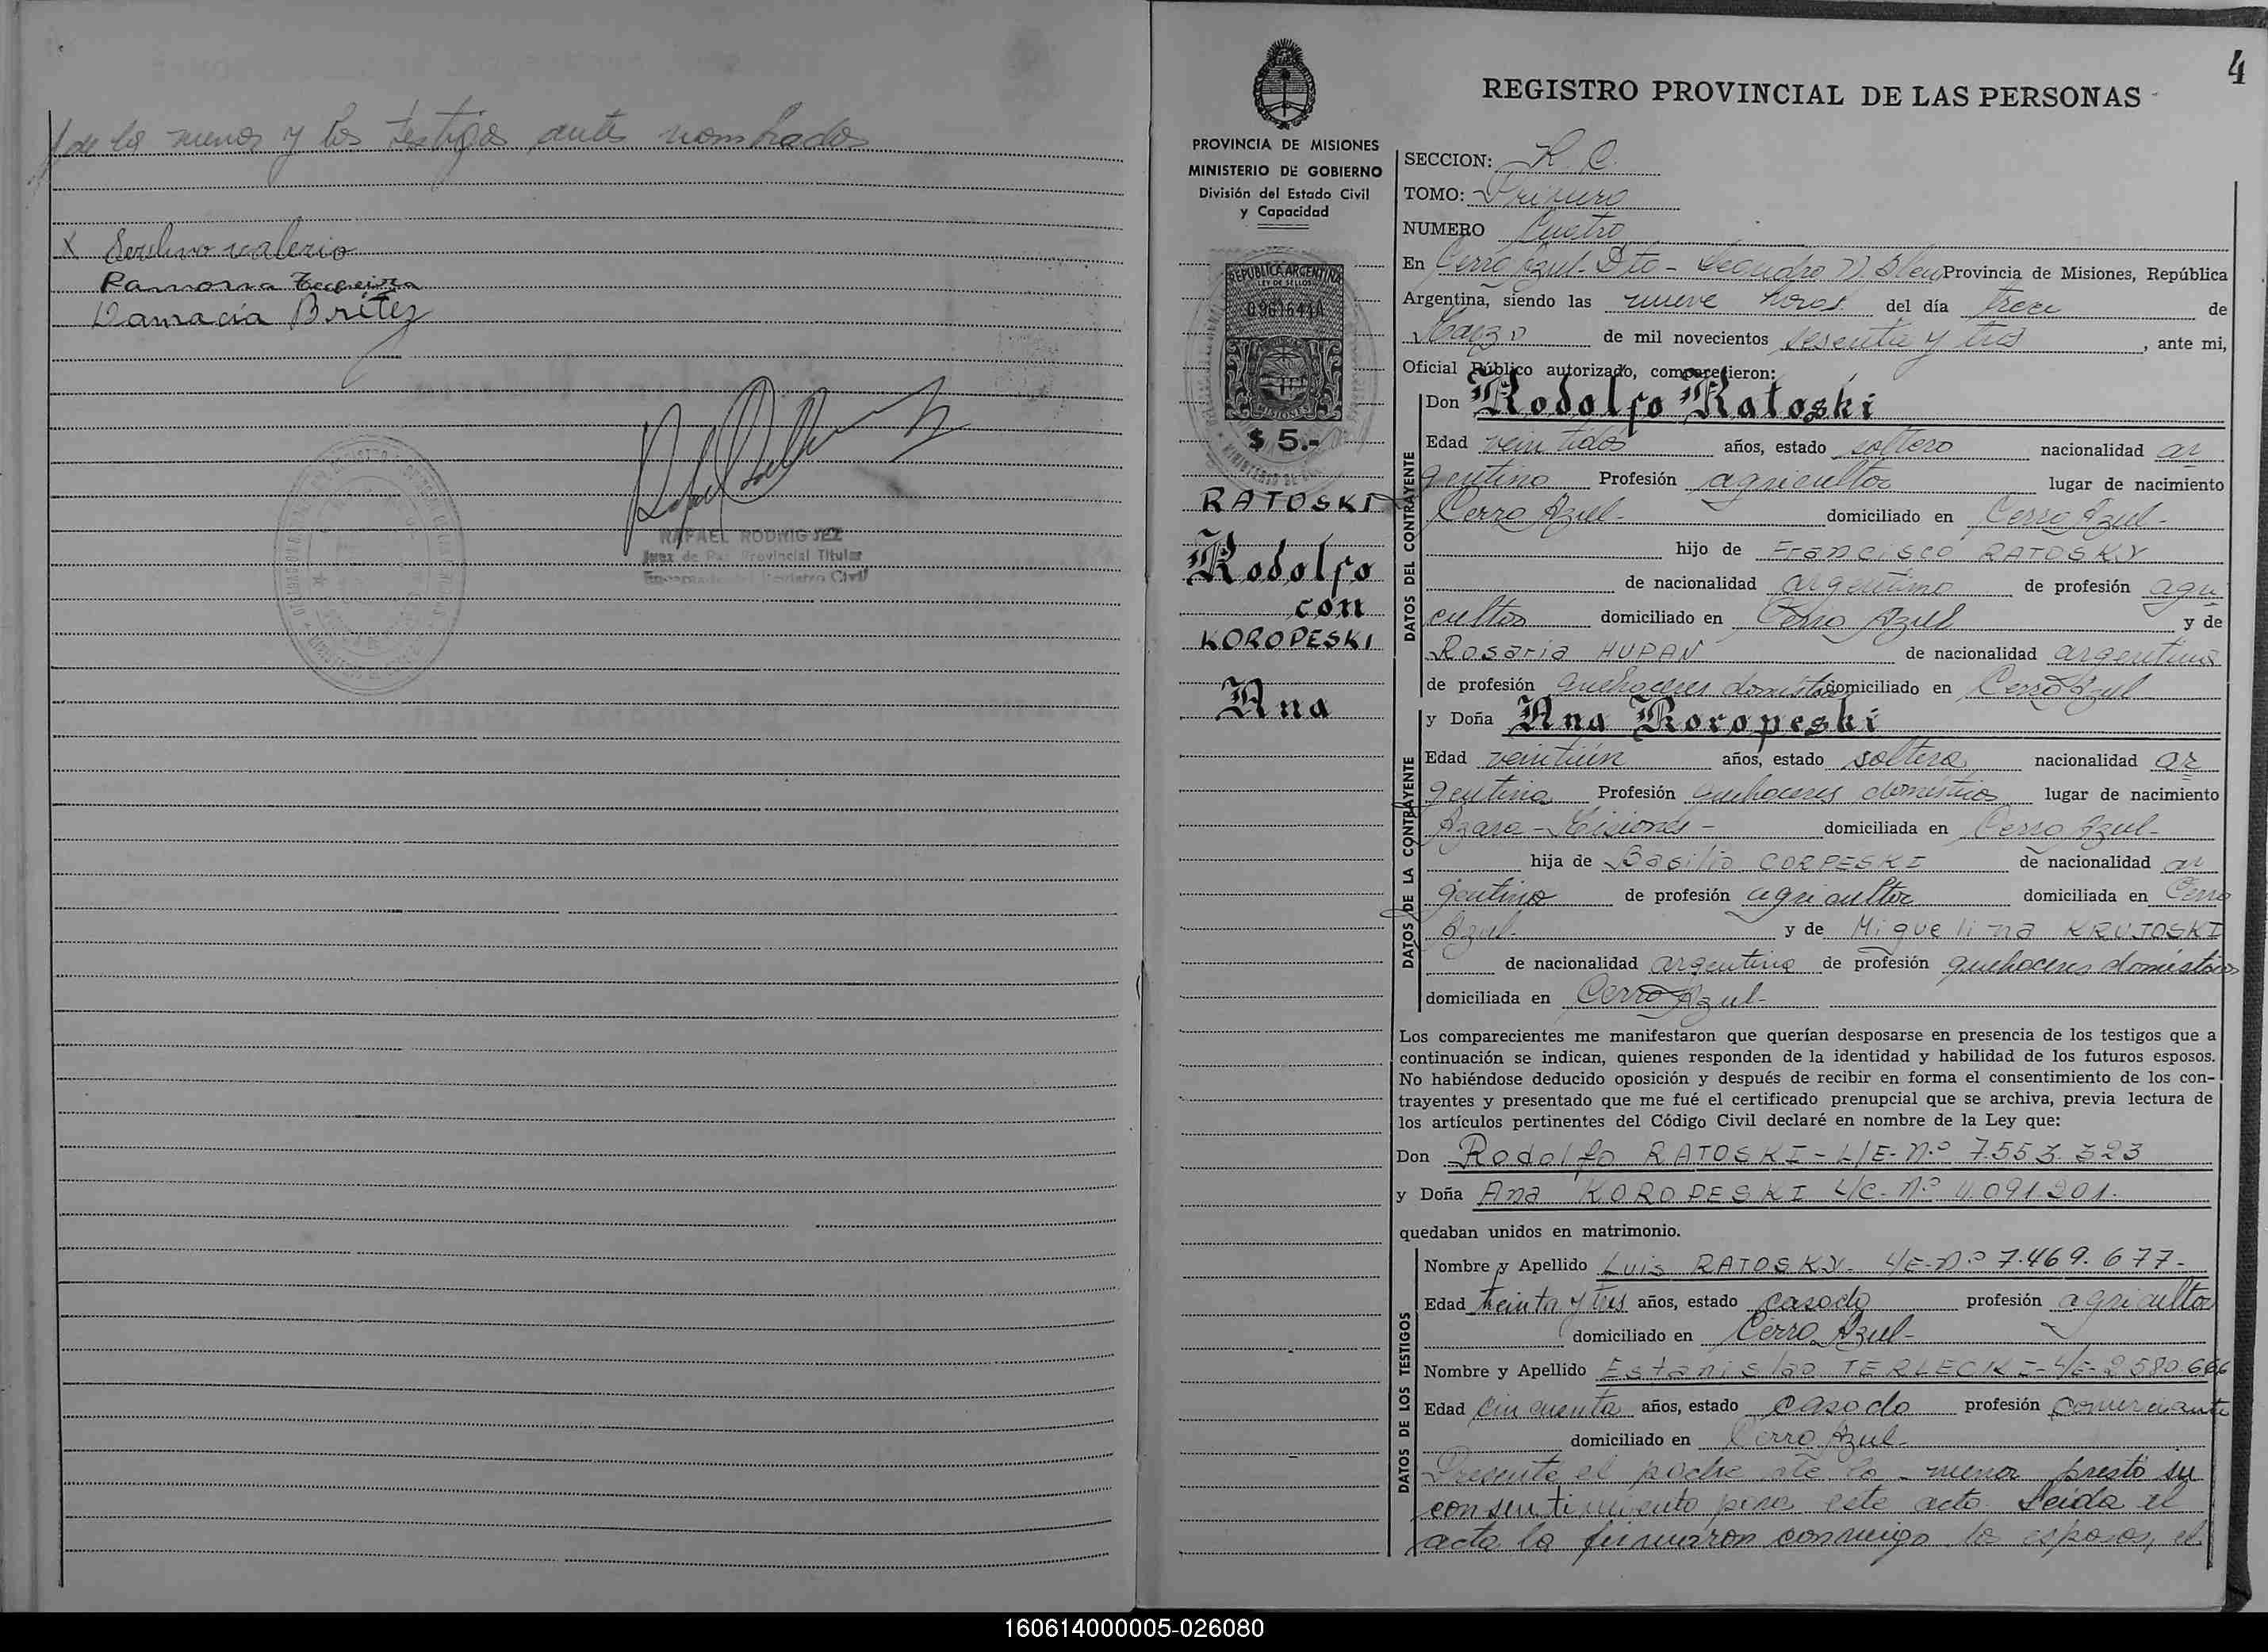 de la menor y los testigos antes nombrados
X Serelino valerio
Ramona Teixeira
Damacia Britez
RAFAEL RODRIGUEZ
Juez de Paz Provincial Titular
Encargado del Registro Civil
4
REGISTRO PROVINCIAL DE LAS PERSONAS
PROVINCIA DE MISIONES
MINISTERIO DE GOBIERNO
División del Estado Civil
y Capacidad
REPUBLICA ARGENTINA
LEY DE SELLOS
MISIONES
$ 5.-
RATOSKI
Rodolfo
con
KOROPESKI
Ana
SECCION: R. C.
TOMO: Primero
NUMERO Cuatro
En Cerro Azul - Dto - Leandro N. Alem Provincia de Misiones, República
Argentina, siendo las nueve horas del día trece de
Marzo de mil novecientos sesenta y tres, ante mi,
Oficial Público autorizado, comparecieron:
DATOS DEL CONTRAYENTE
Don Rodolfo Ratoski
Edad veintidós años, estado soltero nacionalidad ar
gentino Profesión agricultor lugar de nacimiento
Cerro Azul - domiciliado en Cerro Azul -
hijo de Francisco RATOSKY
de nacionalidad argentino de profesión agri
cultor domiciliado en Cerro Azul y de
Rosaria HUPAN de nacionalidad argentina
de profesión quehaceres domésticos domiciliado en Cerro Azul
DATOS DE LA CONTRAYENTE
y Doña Ana Koropeski
Edad veintiún años, estado soltera nacionalidad ar
gentina Profesión quehaceres domésticos lugar de nacimiento
Azara - Misiones - domiciliada en Cerro Azul -
hija de Basilio CORPESKI de nacionalidad ar
gentino de profesión agricultor domiciliada en Cerro
Azul - y de Miguelina KRUJOSKI
de nacionalidad argentina de profesión quehaceres domésticos
domiciliada en Cerro Azul -
Los comparecientes me manifestaron que querían desposarse en presencia de los testigos que a
continuación se indican, quienes responden de la identidad y habilidad de los futuros esposos.
No habiéndose deducido oposición y después de recibir en forma el consentimiento de los con-
trayentes y presentado que me fué el certificado prenupcial que se archiva, previa lectura de
los artículos pertinentes del Código Civil declaré en nombre de la Ley que:
Don Rodolfo RATOSKI - L/E - N.º 7.553.323
y Doña Ana KOROPESKI L/C. N.º 4.091.201.
quedaban unidos en matrimonio.
DATOS DE LOS TESTIGOS
Nombre y Apellido Luis RATOSKY - L/E - N.º 7.469.677 -
Edad treinta y tres años, estado casado profesión agricultor
domiciliado en Cerro Azul -
Nombre y Apellido Estanislao TERLECKI - L/E - 2.580.666
Edad cincuenta años, estado casado profesión comerciante
domiciliado en Cerro Azul -
Presente el padre de la menor prestó su
consentimiento para este acto. Leida el
acta la firmaron conmigo los esposos, el
160614000005-026080